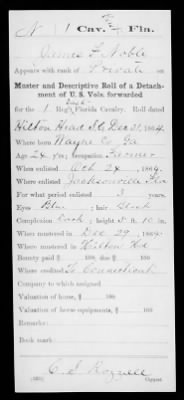 N | 1 | Cav. | Fla.
James F Noble
Appears with rank of Private on
Muster and Descriptive Roll of a Detachment of U. S. Vols. forwarded
for the 1 Reg't Florida Cavalry. Roll dated
Hilton Head S.C. Dec 31, 1864.
Where born Wayne Co Ga
Age 24 y'rs; occupation Farmer
When enlisted Oct 24, 1864.
Where enlisted Jacksonville Fla
For what period enlisted 3 years.
Eyes Blue; hair Black
Complexion Dark; height 5 ft. 10 in.
When mustered in Dec 29, 1864.
Where mustered in Hilton Hd
Bounty paid $ 100; due $ 100
Where credited To Connecticut
Company to which assigned
Valuation of horse, $ 100
Valuation of horse equipments, $ 100
Remarks:
Book mark:
C. S. Rozzell
Copyist.